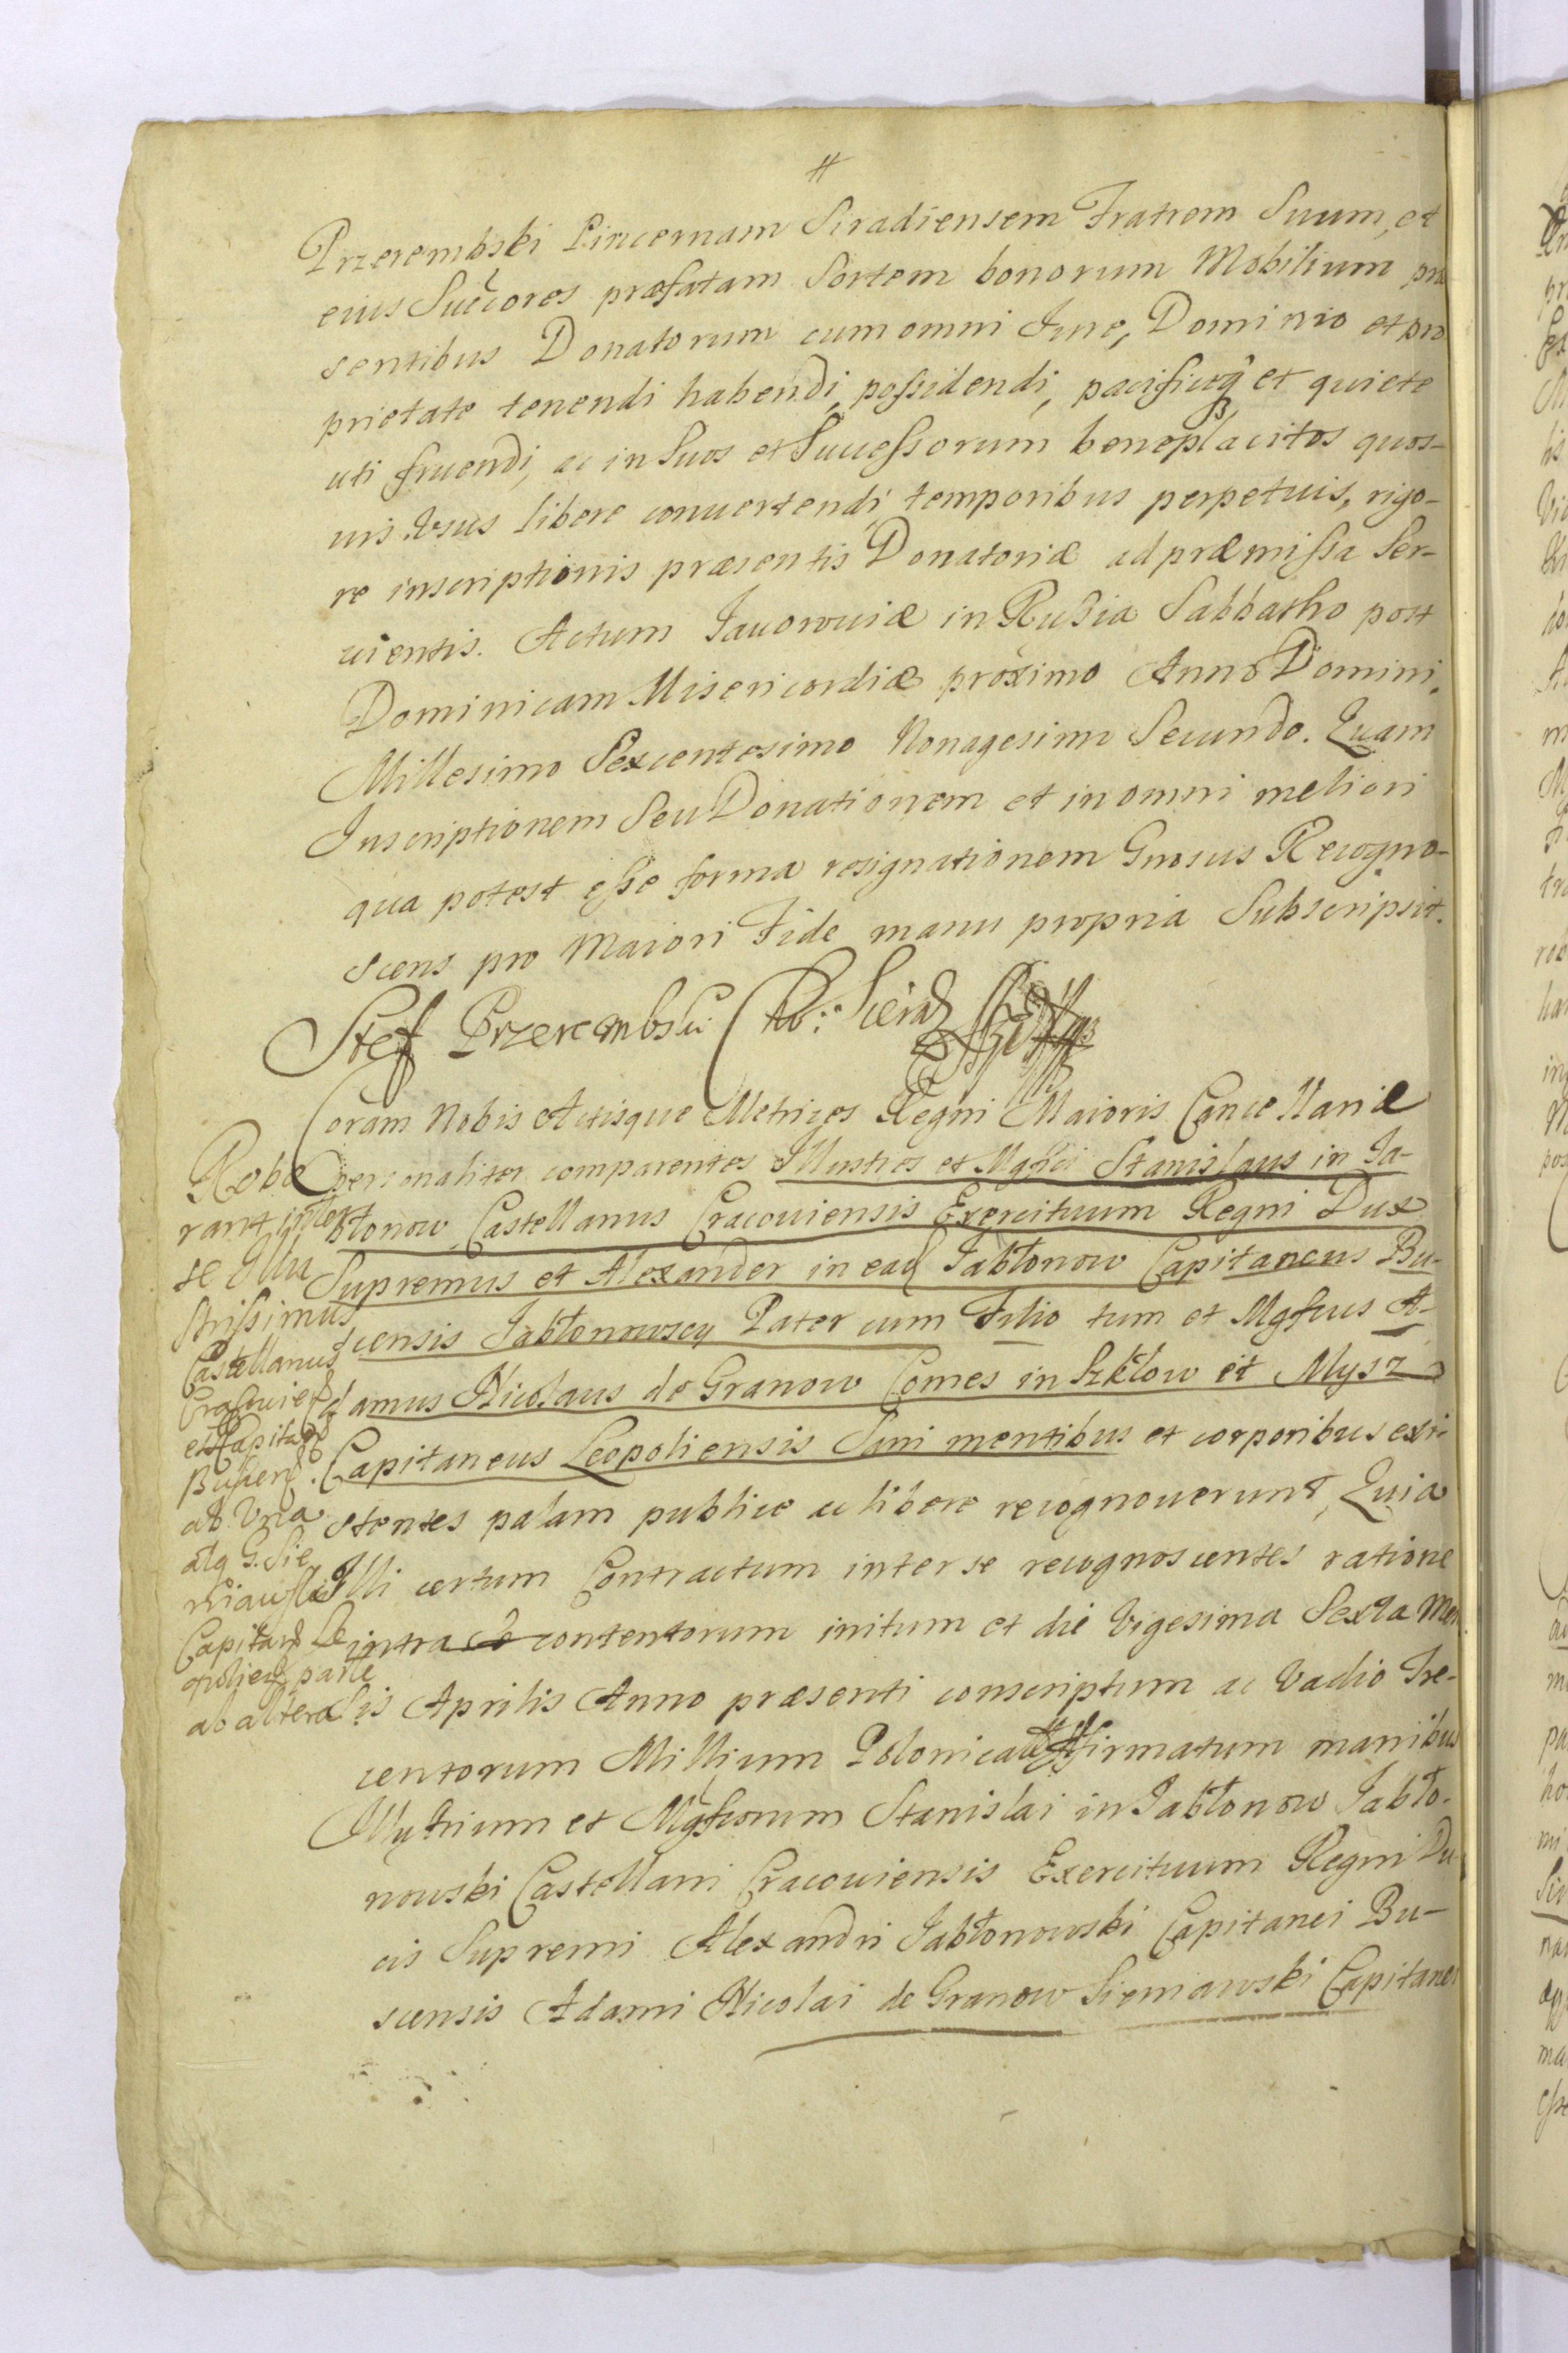 #
Przerembski Pincernam Siradiensem Fratrem Suum, et
eius Succores præfatam Sortem bonorum Mobilium præ
sentibus Donatorum cum omni Iure, Dominio et pro
prietate tenendi habendi, possidendi, pacificeq et quiete
uti fruendi, ac in Suos et Successorum beneplacitos quos-
uis Vsus libere conuertendi temporibus perpetuis, rigo-
re inscriptionis præsentis Donatoriæ ad præmissa Ser-
uientis. Actum Jauorouiæ in Russia Sabbatho post
Dominicam Misericordiæ proximo Anno Domini
Millesimo Sexcentesimo Nonagesimo Secundo. Quam
Inscriptionem Seu Donationem et in omni meliori
qua potest esse forma resignationem Gnosus Recogno-
scens pro Maiori Fide manu propria Subscripsit.
Stef Przerembski Cho: Sierad
Coram Nobis Actisque Metrices Regni Maioris Cancellariæ
personaliter comparentes Illustres et Mgfici Stanislaus in Ja-
błonow Castellanus Cracouiensis Exercituum Regni Dux
Supremus et Alexander in ead Jabłonow Capitaneus Bu-
scensis Jabłonowscy Pater cum Filio tum et Mgficus A-
damus Nicolaus de Granow Comes in Szkłow et Mysz
Capitaneus Leopoliensis Sani mentibus et corporibus exi-
stentes palam publice ac libere recognouerunt, Quia
Illi certum Contractum inter se recognoscentes ratione
intra contentorum initum et die Vigesima Sexta Men
sis Aprilis Anno præsenti conscriptum ac Vadio Tre-
centorum Millium Polonicali firmatum manibus
Illustrium et Mgficorum Stanislai in Jabłonow Jabło-
nowski Castellani Cracouiensis Exercituum Regni Du
cis Supremi Alexandri Jabłonowski Capitanei Bu-
scensis Adami Nicolai de Granow Sieniawski Capitanei
Robo
rant inter
se Illu
strissimus
Castellanus
Cracouien
et Capitan
Buscen
ab Vna
atq G. Sie
niauski
Capitan Le
opolien parte
ab altera